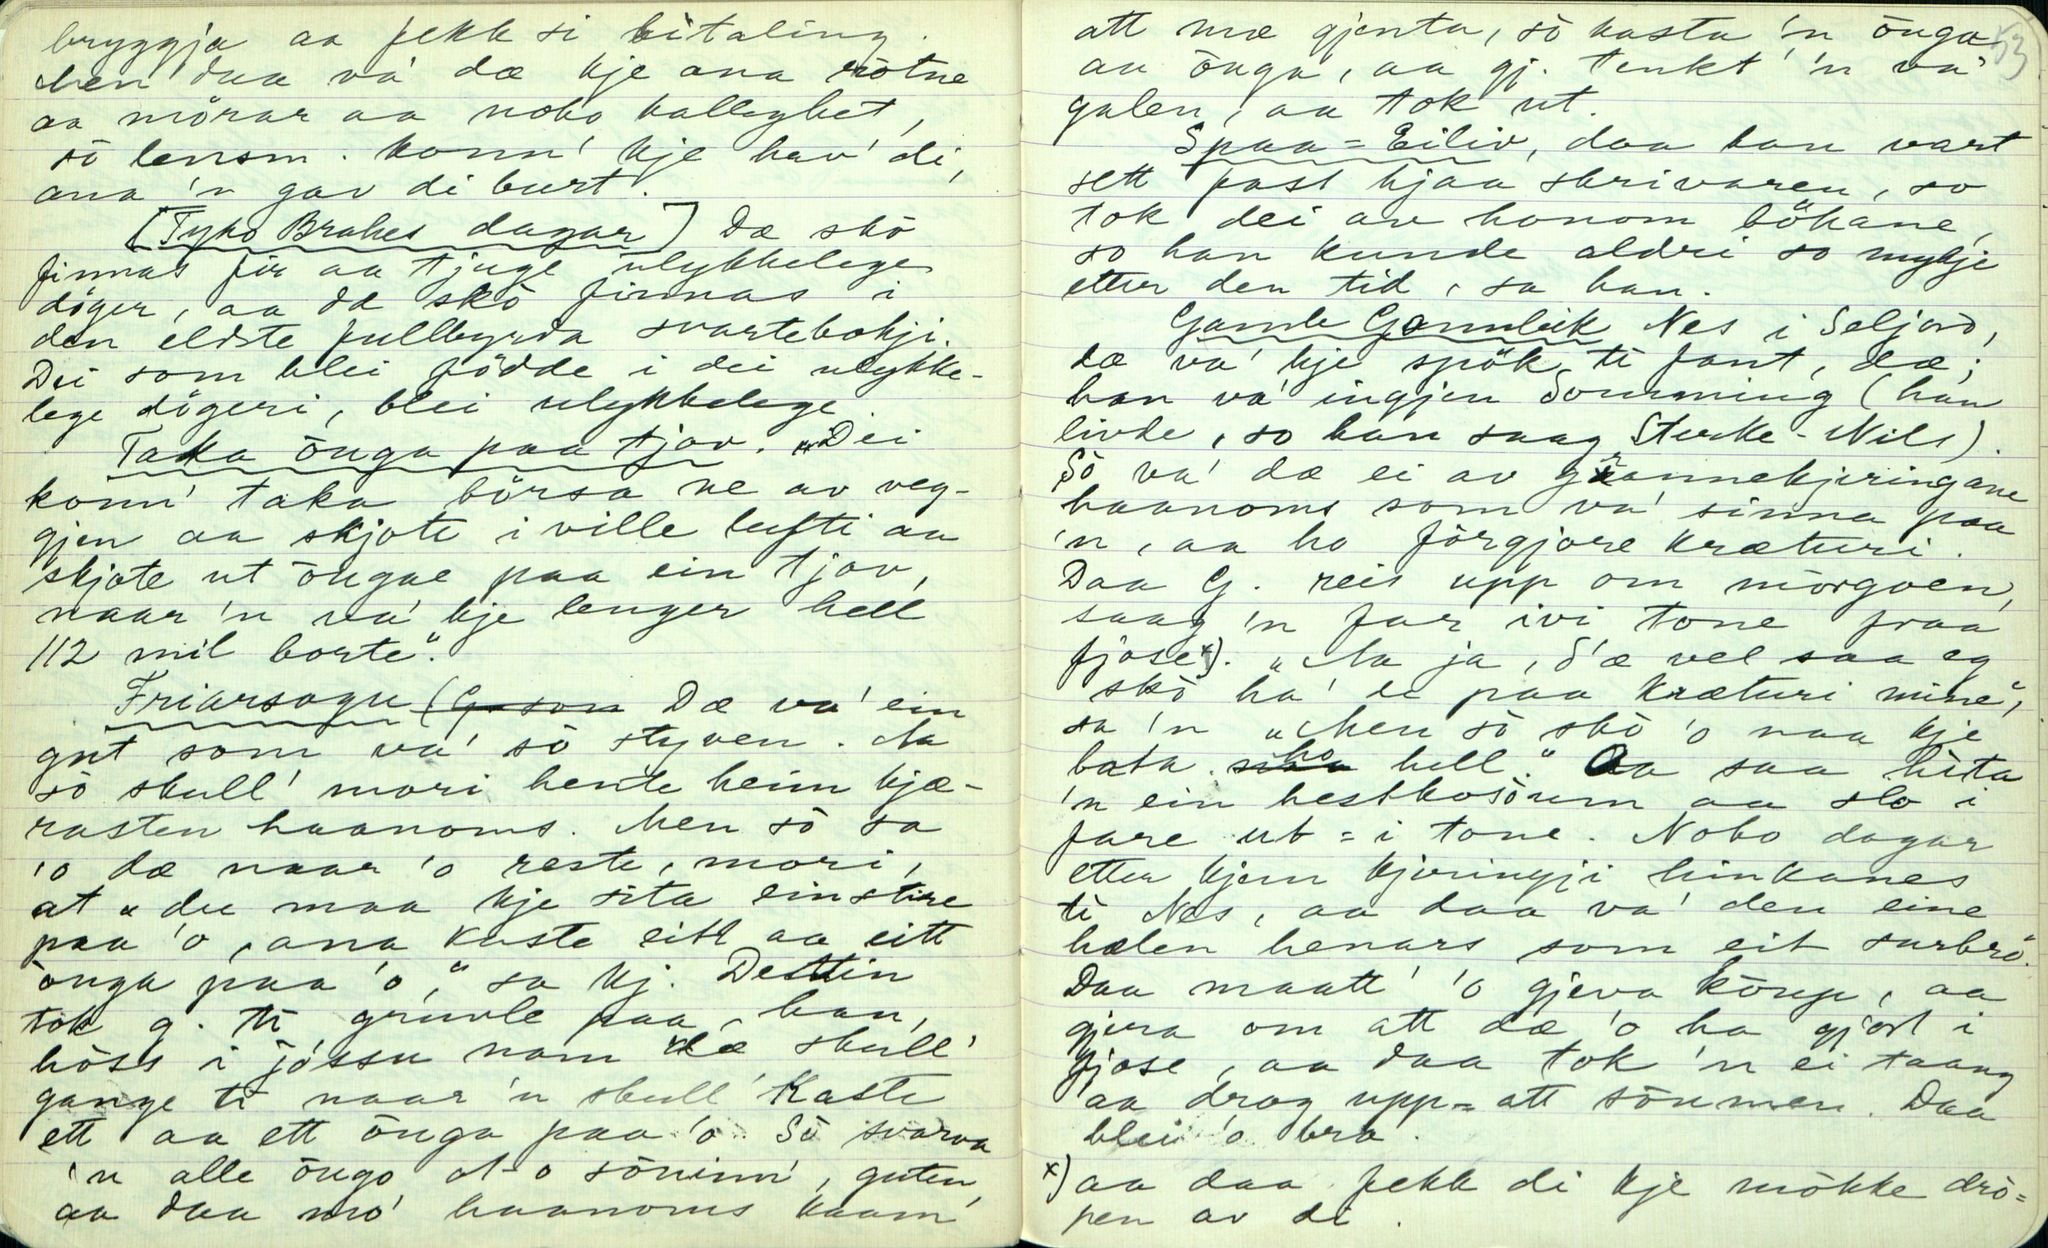 bryggja aa fekk si bitaling.
Men daa va' dæ kje ana rötne
aa mörar aa noko kalleghet,
sö lensm. konn' kje hav' di,
ana 'n gav di burt.
[Tyko Brahes dagar] Dæ skö
finnas fir aa tjuge ulykkelege
döger, aa dæ skö finnas i
den eldste fullbyrda svartebokji.
Dei som blei födde i dei ulykke-
lege dögeri, blei ulykkelege.
Taka önga paa tjov. "Dei
konn' taka börsa ne av veg-
gjen aa skjote i ville lufti aa
skjote ut öngae paa ein tjov,
naar 'n va' kje lenger hell
112 mil borte".
Friarsogu (G. son Dæ va' ein
gut som va' sö styven. Aa
sö skull' mori hente heim kjæ-
rasten haanoms. Men sö sa
'o dæ naar 'o reste, mori,
at "du maa kje sita einstire
paa 'o, ana kaste eitt aa eitt
önga paa 'o," sa kj. Destin
tok g. ti gruvle paa, han,
höss i jössu nam dæ skull'
gange ti naar 'n skull' kaste
ett aa ett önga paa 'o. Sö svarva
'n alle öngo ot-o söninn', guten,
aa daa mo' haanoms kaam
53
att mæ gjenta, sö kasta 'n önga
aa önga, aa gj. tenkt' 'n va'
galen, aa tok ut.
Spaa-Eiliv, daa han vart
sett fast hjaa skrivaren, so
tok dei av honom bökane,
so han kunde aldri so mykje
etter den tid, sa han.
Gamle Gonnleik Nes i Seljord,
dæ va' kje spök ti fant, dæ;
han va' ingjen Soumming (han
livde, so han saag Sterke-Nils).
Sö va' dæ ei av grannekjeringane
haanoms som va' sinna paa
'n, aa ho förgjore kræturi.
Daa G. reis upp om morgoen,
saag 'n far ivi tone fraa
fjose x). "Aa ja, d'æ vel saa eg
skö ha' de paa kræturi mine",
sa 'n "Men sö skö 'o naa kje
bata ho hell." Aa saa hita
'n ein hestkosöum aa slo i
fare ut-i tone. Noko dagar
etter kjem kjeringji hinkanes
ti Nes, aa daa va' den eine
hælen henars som eit surbrö.
Daa maatt' 'o gjeva köup, aa
gjera om att dæ 'o ha gjort i
fjose, aa daa tok 'n ei taang
aa drog upp-att söumen. Daa
blei 'o bra.
x) aa daa fekk di kje mökke drö-
pen av di.